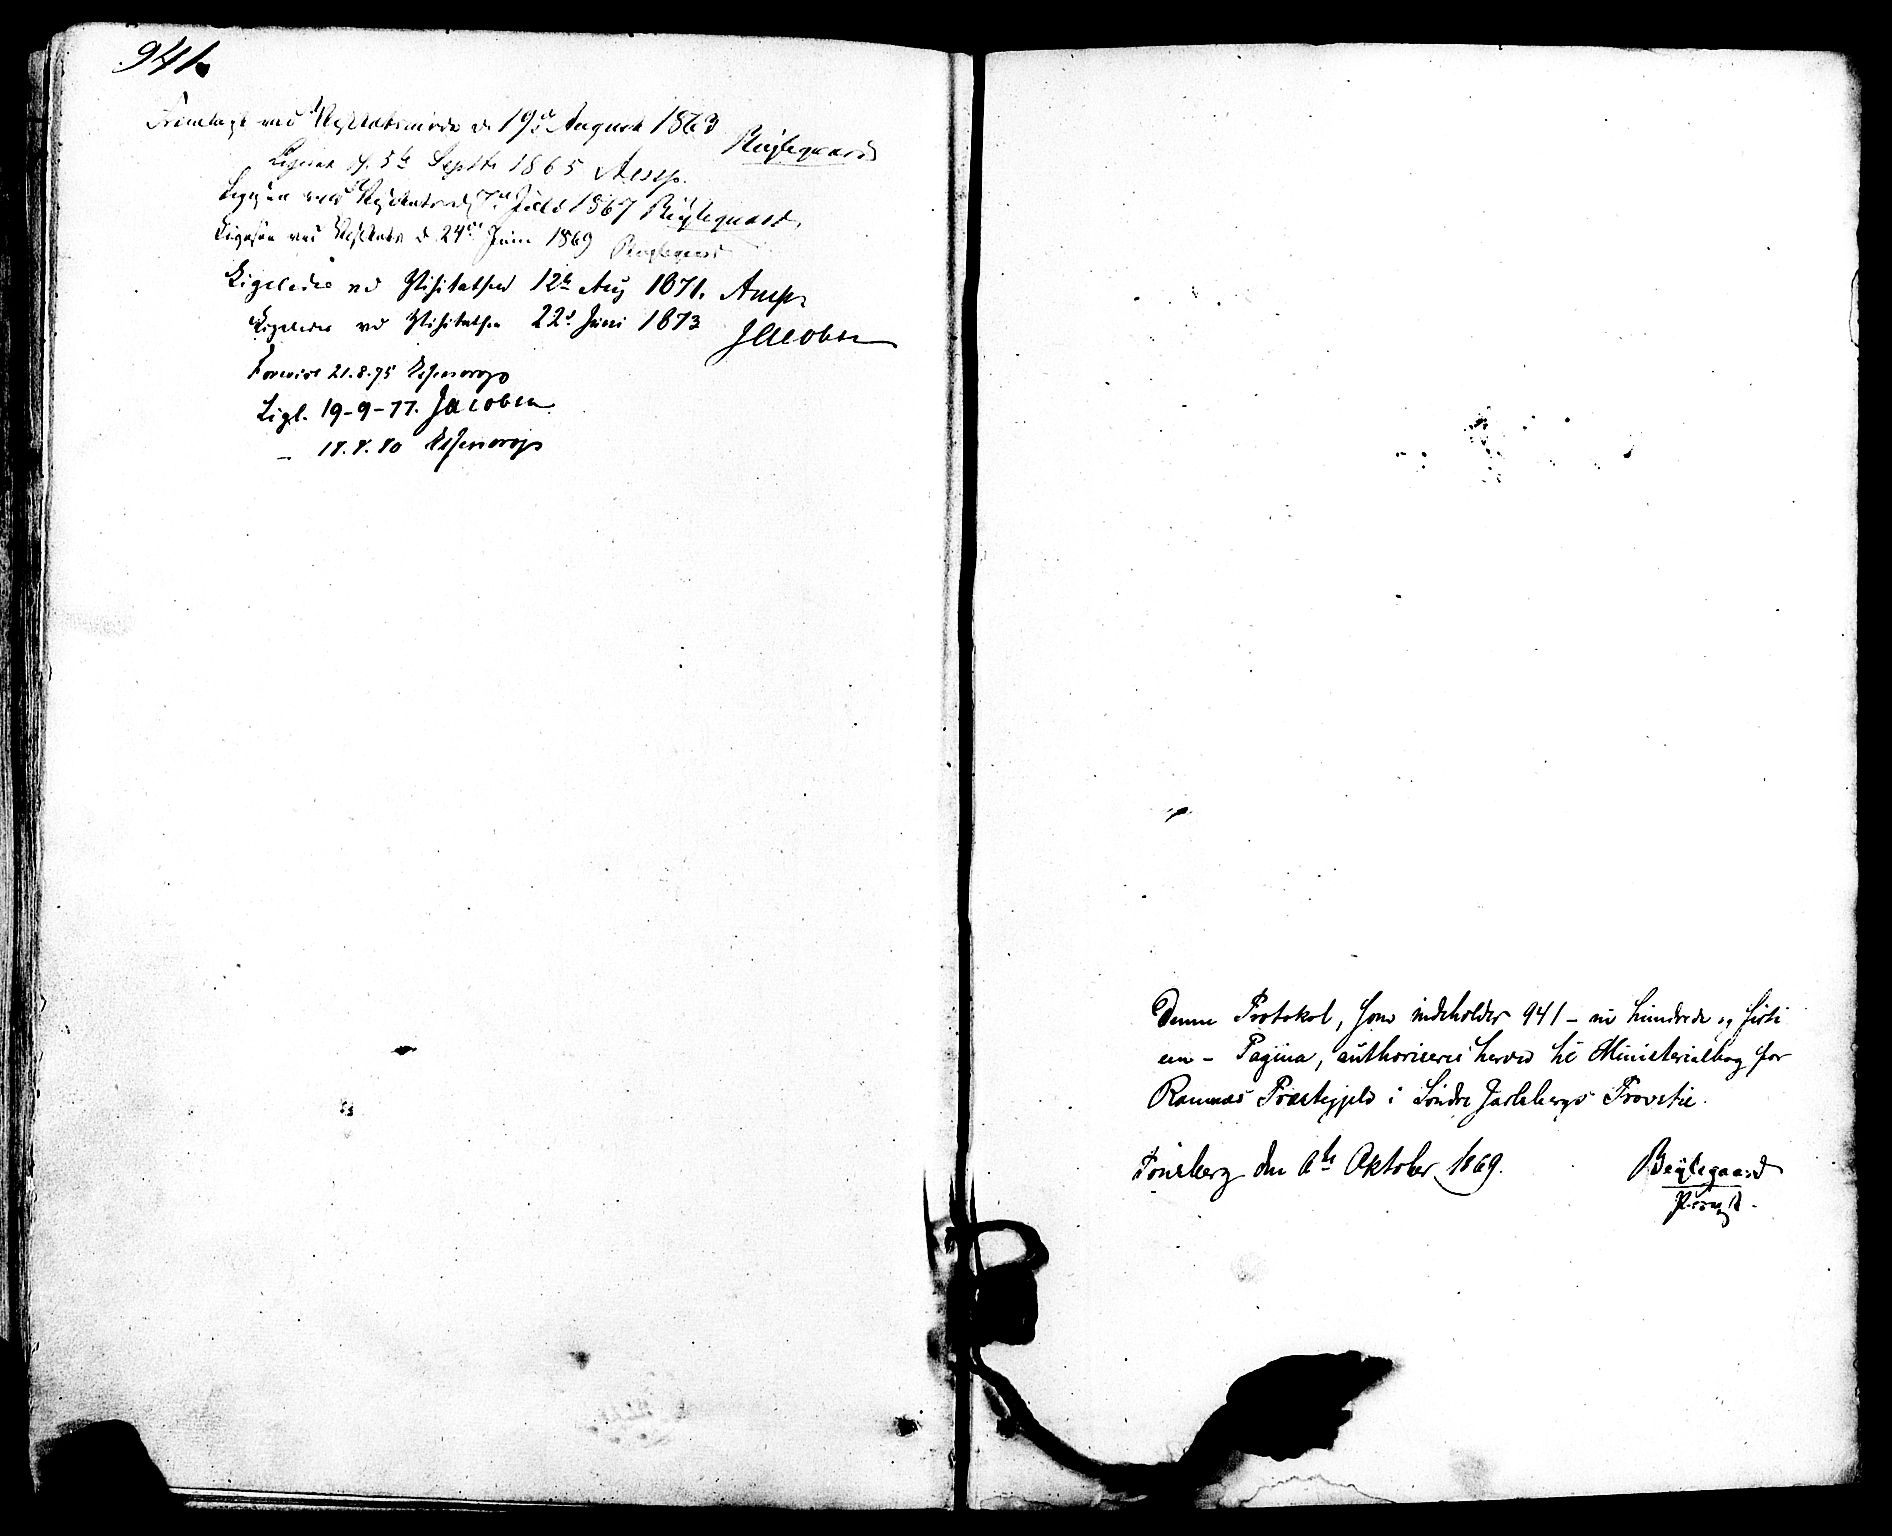 941.
Fremlagt ved Visitatsen d 19de August 1863
Beÿlegaard
Ligesaa d. 5te Septbr 1865
Ligesaa ved Visitats d 7de Juli 1867 Beÿlegaard.
Ligesaa ved Visitats d 24de Juni 1869 Beÿlegaard
Ligeledes ved Visitatsen 12te Aug 1871.
Ligeledes ved Visitatsen 22de Juni 1873 Jacobsen
Forevist 21.8.75 Essendrop
Ligl. 19-9-77. Jacobsen
– 18.8.80 Essendrop
Denne Protokol, som indeholder 941 – ni hundrede og firti
een – Pagina, authoriseres herved til Ministerialbog for
Ramnæs Præstegjeld i Søndre Jarlsbergs Provsti.
Tönsberg den 6te Oktober 1869.
Beÿlegaard
Provst.